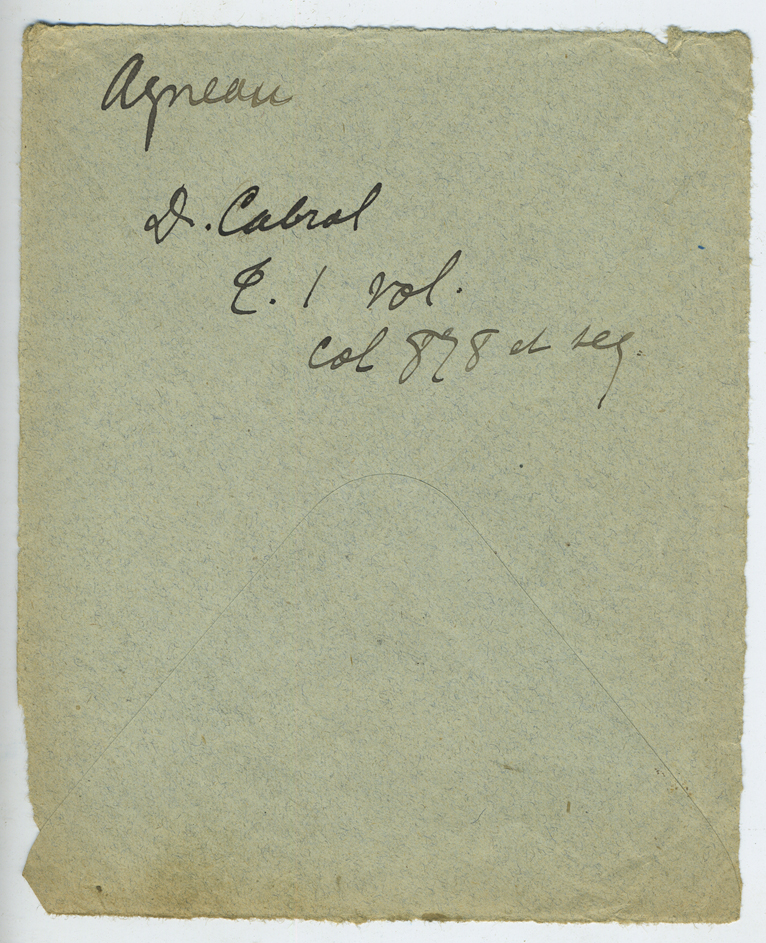 Agneau
D. Cabrol
T. 1 vol.
col 878 et seq.